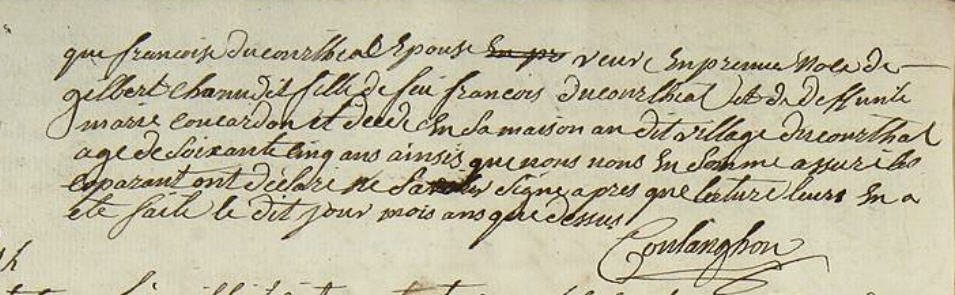 que francoise ducourtheal Epouse En pr veuve En premier Noce de
gilbert chanudit fille de feu francois ducourtheal Et de Deffunte
marie coucardon et décédé En Sa maison au dit village ducourthal
age de soixante cinq ans ainsis que nous nous En Somme assuré les
coparant ont déclaré ne Savoir Signe apres que lecture leurs En a
été faite le dit jour mois ans que dessus
Coulanghon